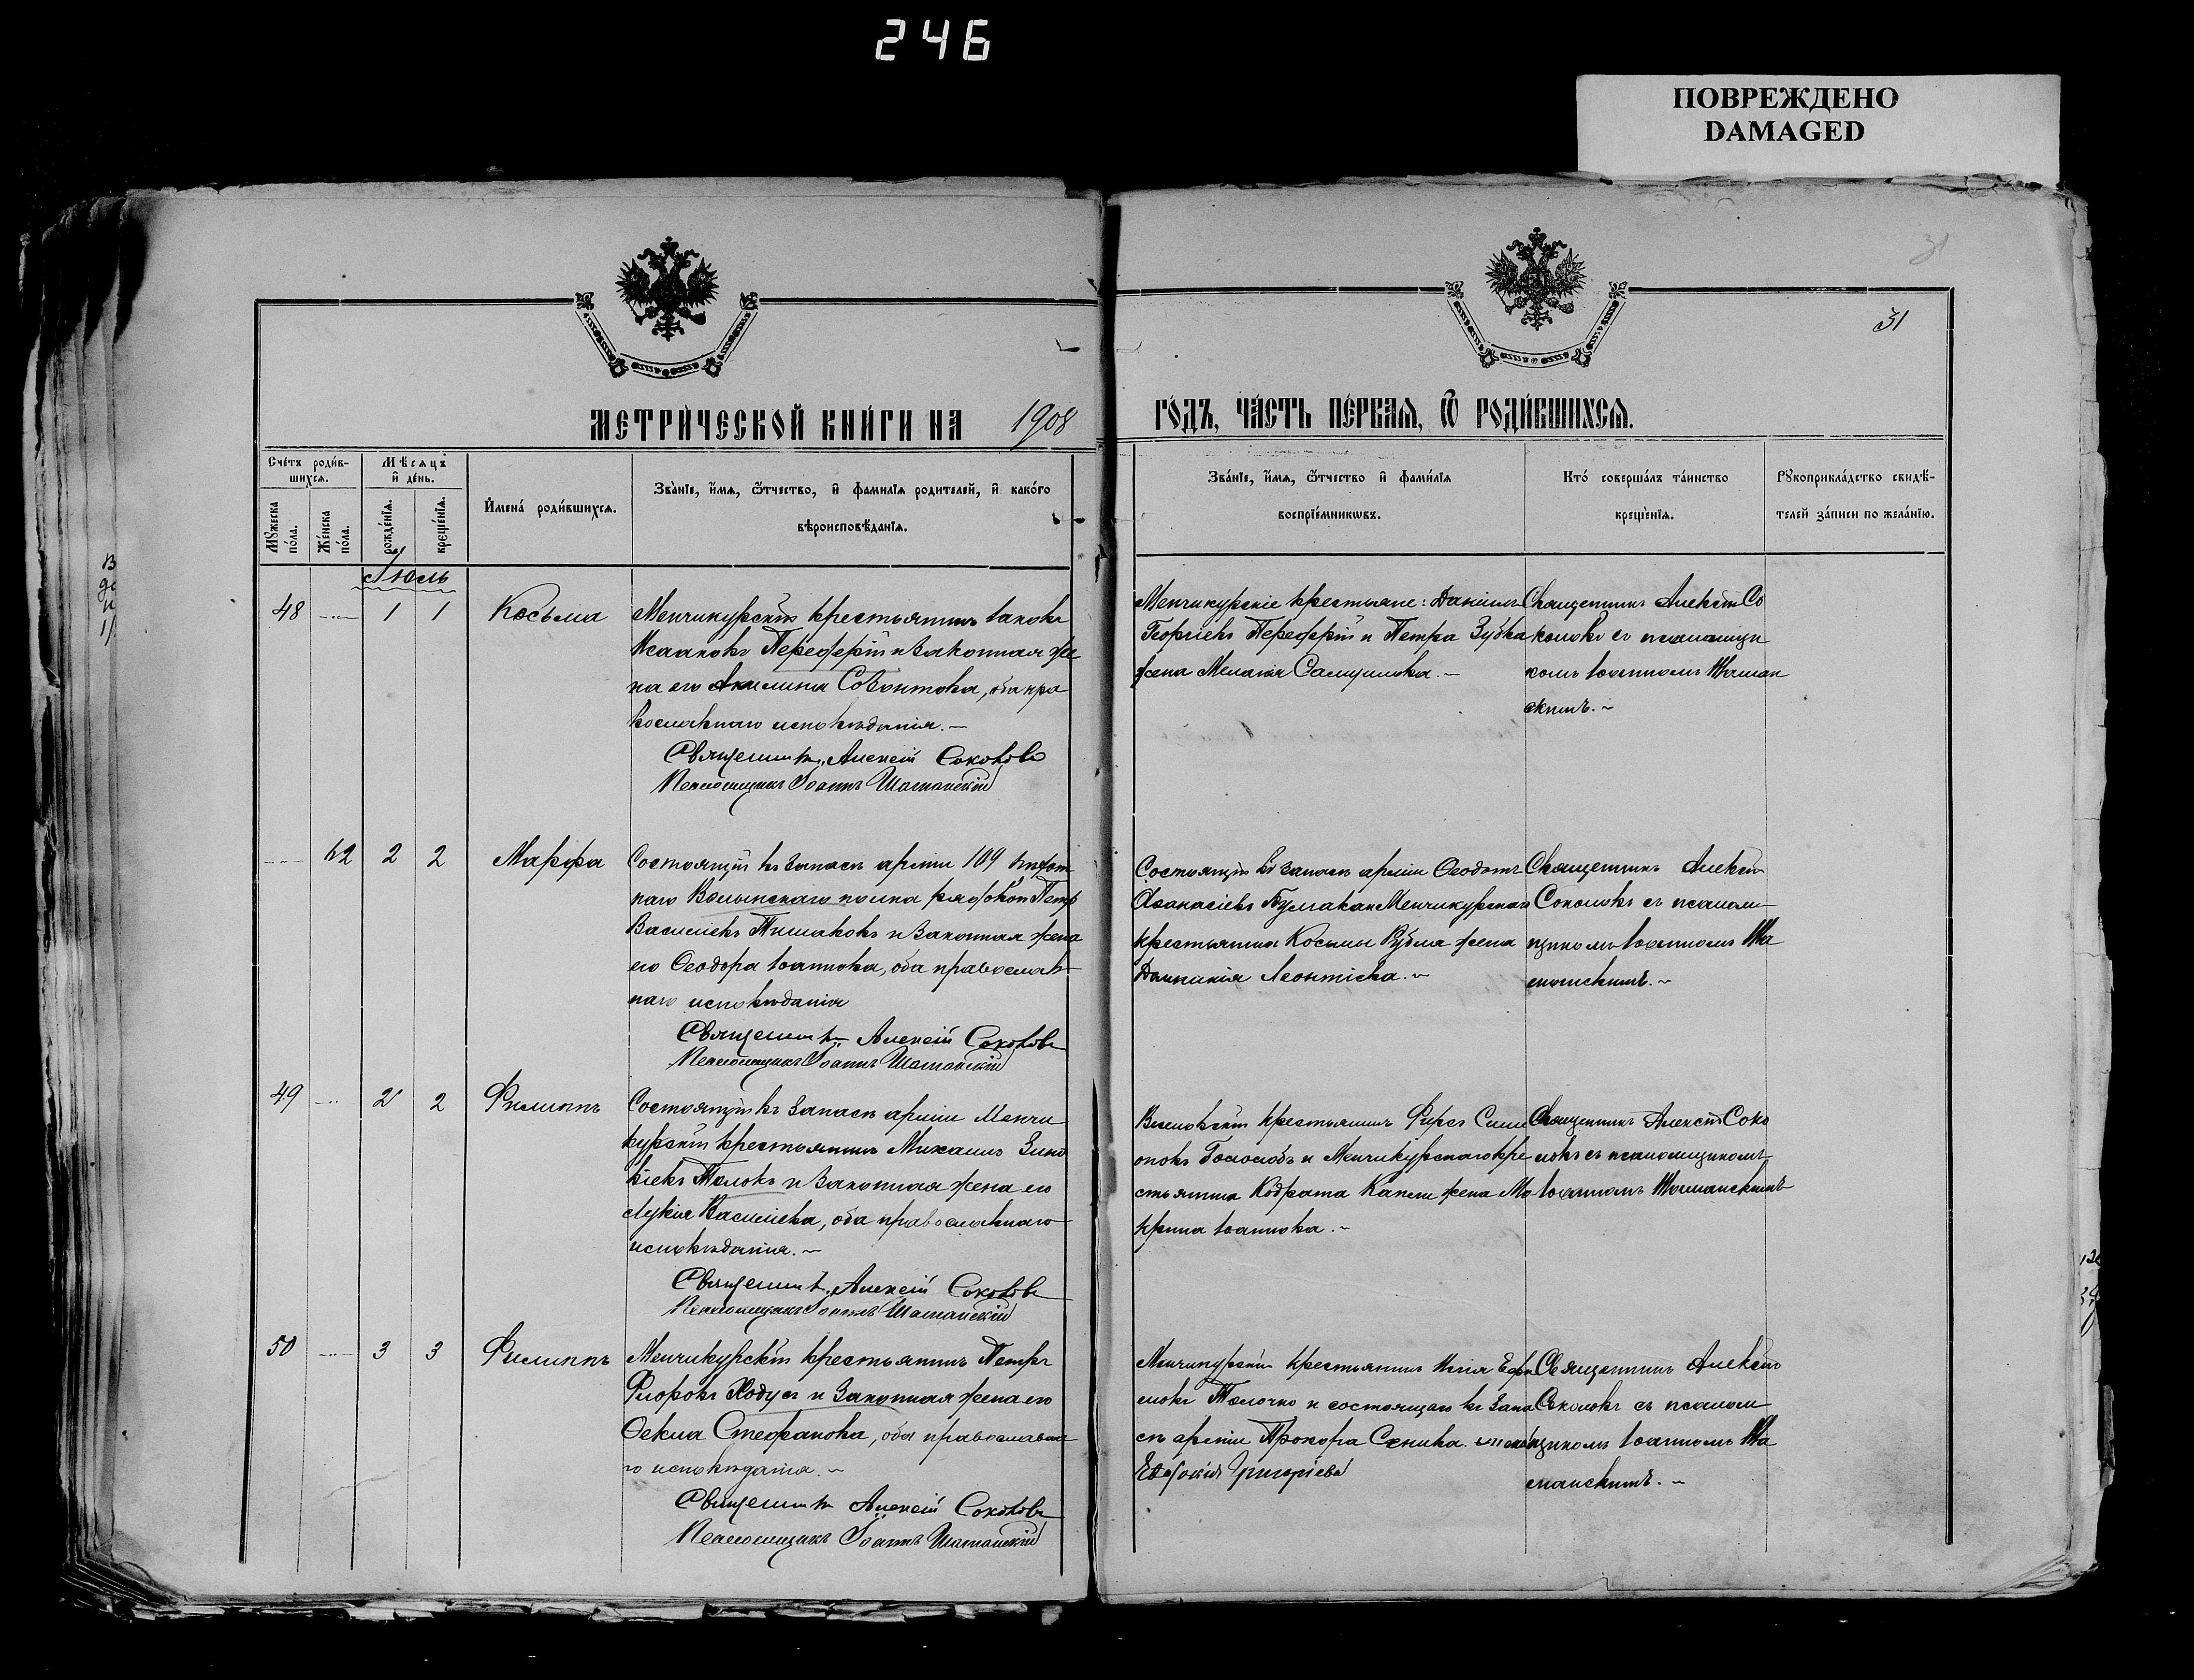 246
ПОВРЕЖДЕНО
DAMAGED
31
31
МЕТРИ́ЧЕСКОЙ КНИ́ГИ НА 1908 ГО́ДЪ, ЧА́СТЬ ПЕ́РВАЯ, Ѿ РОДИ́ВШИХСЯ.
Сче́тъ роди́в-
шихся.
Мꙋжеска
по́ла.
Же́нска
по́ла.
Мѣсяцъ
и҆ де́нь.
рожде́нїя.
креще́нїя.
И҆мена́ роди́вшихся.
Зва́нїе, и҆́мя, ѻ҆́тчество, и҆ фами́лїя родителей, и҆ како́го
вѣроисповѣ́данїя.
Зва́нїе, и҆́мя, ѻ҆́тчество и҆ фами́лїя
воспрїе́мникѡвъ.
Кто́ соверша́лъ та́инство
креще́нїя.
Рꙋкоприкла́дство свидѣ́-
телей за́писи по жела́нїю.
Іюль
48 1 1 Косьма
Менчикурскій крестьянинъ Іаковъ
Исааковъ Переферій и законная же
на его Акилина Созонтова, оба пра
вославнаго исповѣданія.
Священникъ Алексій Соколовъ
Псаломщикъ Іоаннъ Шаманскій
Менчикурскіе крестьяне: Даніилъ
Георгіевъ Переферій и Петра Зубка
жена Меланія Самуилова.
Священникъ Алексій Со
коловъ съ псаломщи
комъ Іоанномъ Шаман
скимъ.
42 2 2 Марфа
Состоящій въ запасѣ арміи 109 пѣхот
наго Волынскаго полка рядовой Петр
Василіевъ Тишаковъ и законная жена
его Ѳеодора Іоаннова, оба православ-
наго исповѣданія
Священникъ Алексій Соколовъ
Псаломщикъ Іоаннъ Шаманскій
Состоящій въ запасѣ арміи Ѳеодотъ
Аѳанасіевъ Булгакъ и Менчикурскаго
крестьянина Космы Рубля жена
Домникія Леонтіева.
Священникъ Алексій
Соколовъ съ псалом-
щикомъ Іоанномъ Ша
манскимъ.
49 2 2 Филиппъ
Состоящій въ запасѣ арміи Менчи
курскій крестьянинъ Михаилъ Зино
віевъ Толокъ и законная жена его
Лукія Василіева, оба православнаго
исповѣданія.
Священникъ Алексій Соколовъ
Псаломщикъ Іоаннъ Шаманскій
Веселовскій крестьянинъ Фирсъ Сими
оновъ Голослобъ и Менчикурскаго кре
стьянина Кодрата Капли жена Ма
крина Іоаннова.
Священникъ Алексій Соко
ловъ съ псаломщикомъ
Іоанномъ Шаманскимъ
50 3 3 Филиппъ
Менчикурскій крестьянинъ Петръ
Флоровъ Ходусъ и законная жена его
Ѳекла Стефанова, оба православна
го исповѣданія.
Священникъ Алексій Соколовъ
Псаломщикъ Іоаннъ Шаманскій
Менчикурскій крестьянинъ Илія Ефи
мовъ Толочко и состоящаго въ запа
сѣ арміи Прохора Сеника жена
Евдокія Григоріева
Священникъ Алексій
Соколовъ съ псалом
щикомъ Іоанномъ Ша
манскимъ.